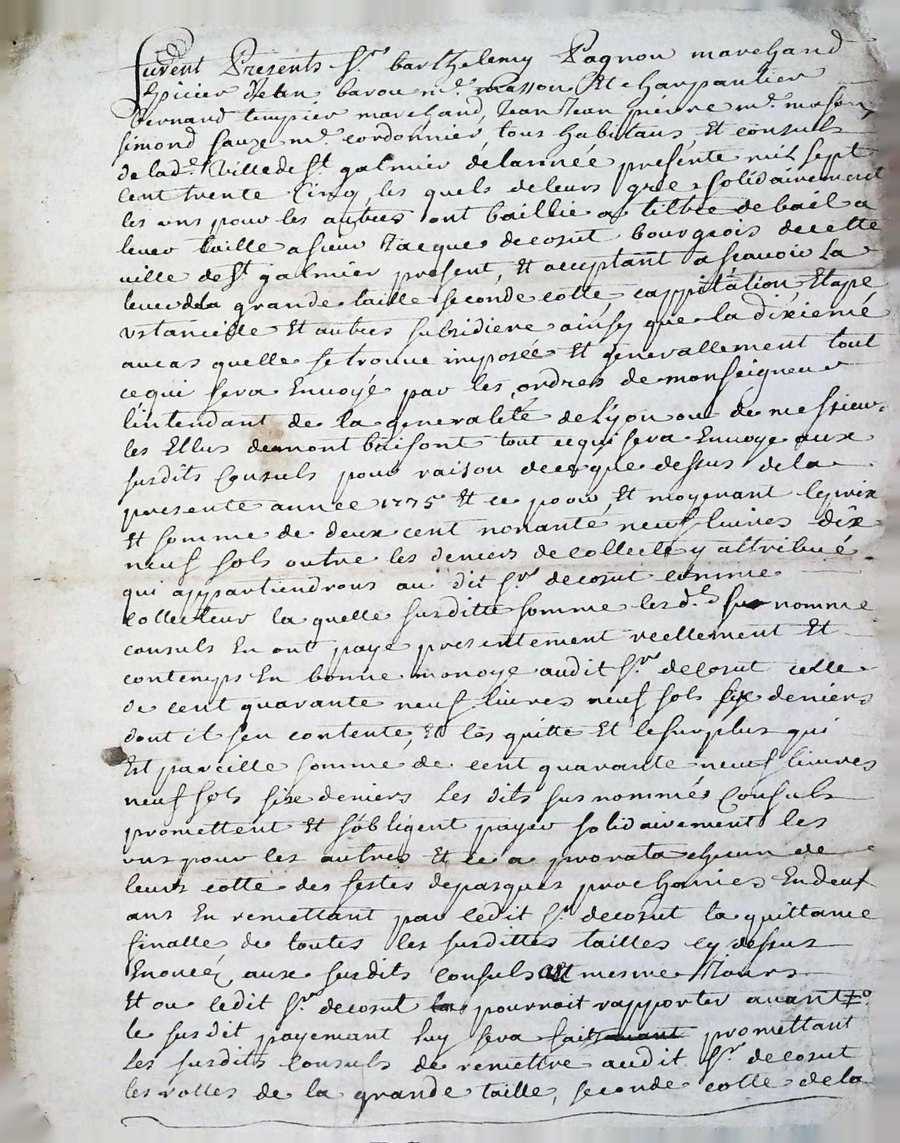 furent Presents Sr barthelemy Pagnon marchand
Epicier Jean barou me masson Et charpantier
bernard tempier marchand, Jean Jean pierre me masson
simond fauze me cordonnier tous habitans Et consuls
de lad. Ville de St galmier de lannée présente mil sept
cent trente Cinq les quels de leurs gré solidairement
les uns pour les autres ont baillié a tiltre de bail a
lever taille a sieur Jacque decosut bourgeois de cette
ville de St galmier présent, Et acceptant a scavoir La
levee de la grande taille seconde cotte cappitation Etape
ustancille Et autres subsidiere ainsy que la dixieme
au cas quelle se trouve imposée Et generallement tout
ce qui sera Envoyé par les ordres de monseigneur
l'intendant de la generalité de Lyon ou de messieurs
les Ellus de mont brisont tout ce qui sera Envoye aux
susdits Consuls pour raison de ce que dessus de la
presente année 1775 Et ce pour Et moyenant le prix
Et somme de deux cent nonante neuf livres dix
neuf sols outre les deniers de collecte y attribué
qui appartiendrons au dit Sr decosut comme
collecteur la quelle susditte somme lesd. sus nomme
consuls En ont paye presentement reellement Et
contemps En bonne monoye audit Sr decosut celle
de cent quarante neuf livres neuf sols six deniers
dont il sen contente, Et les quitte Et le surplus qui
Est pareille somme de cent quarante neuf livres
neuf sols six deniers Les dits sus nommés Consuls
promettent Et sobligent payer solidairement les
uns pour les autres Et ce a prorata chacun de
leurs cotte des festes de pasques prochaines En deux
ans En remettant par ledit Sr decosut la quittance
finalle de toutes les susdittes tailles cy dessus
Enoncéz aux susdits consuls Et mesme
Et ou ledit Sr decosut pourroit rapporter avant
le susdit payemant luy sera fait promettant
Les susdits Consuls de remettre audit Sr decosut
les rolles de la grande taille, seconde cotte de la